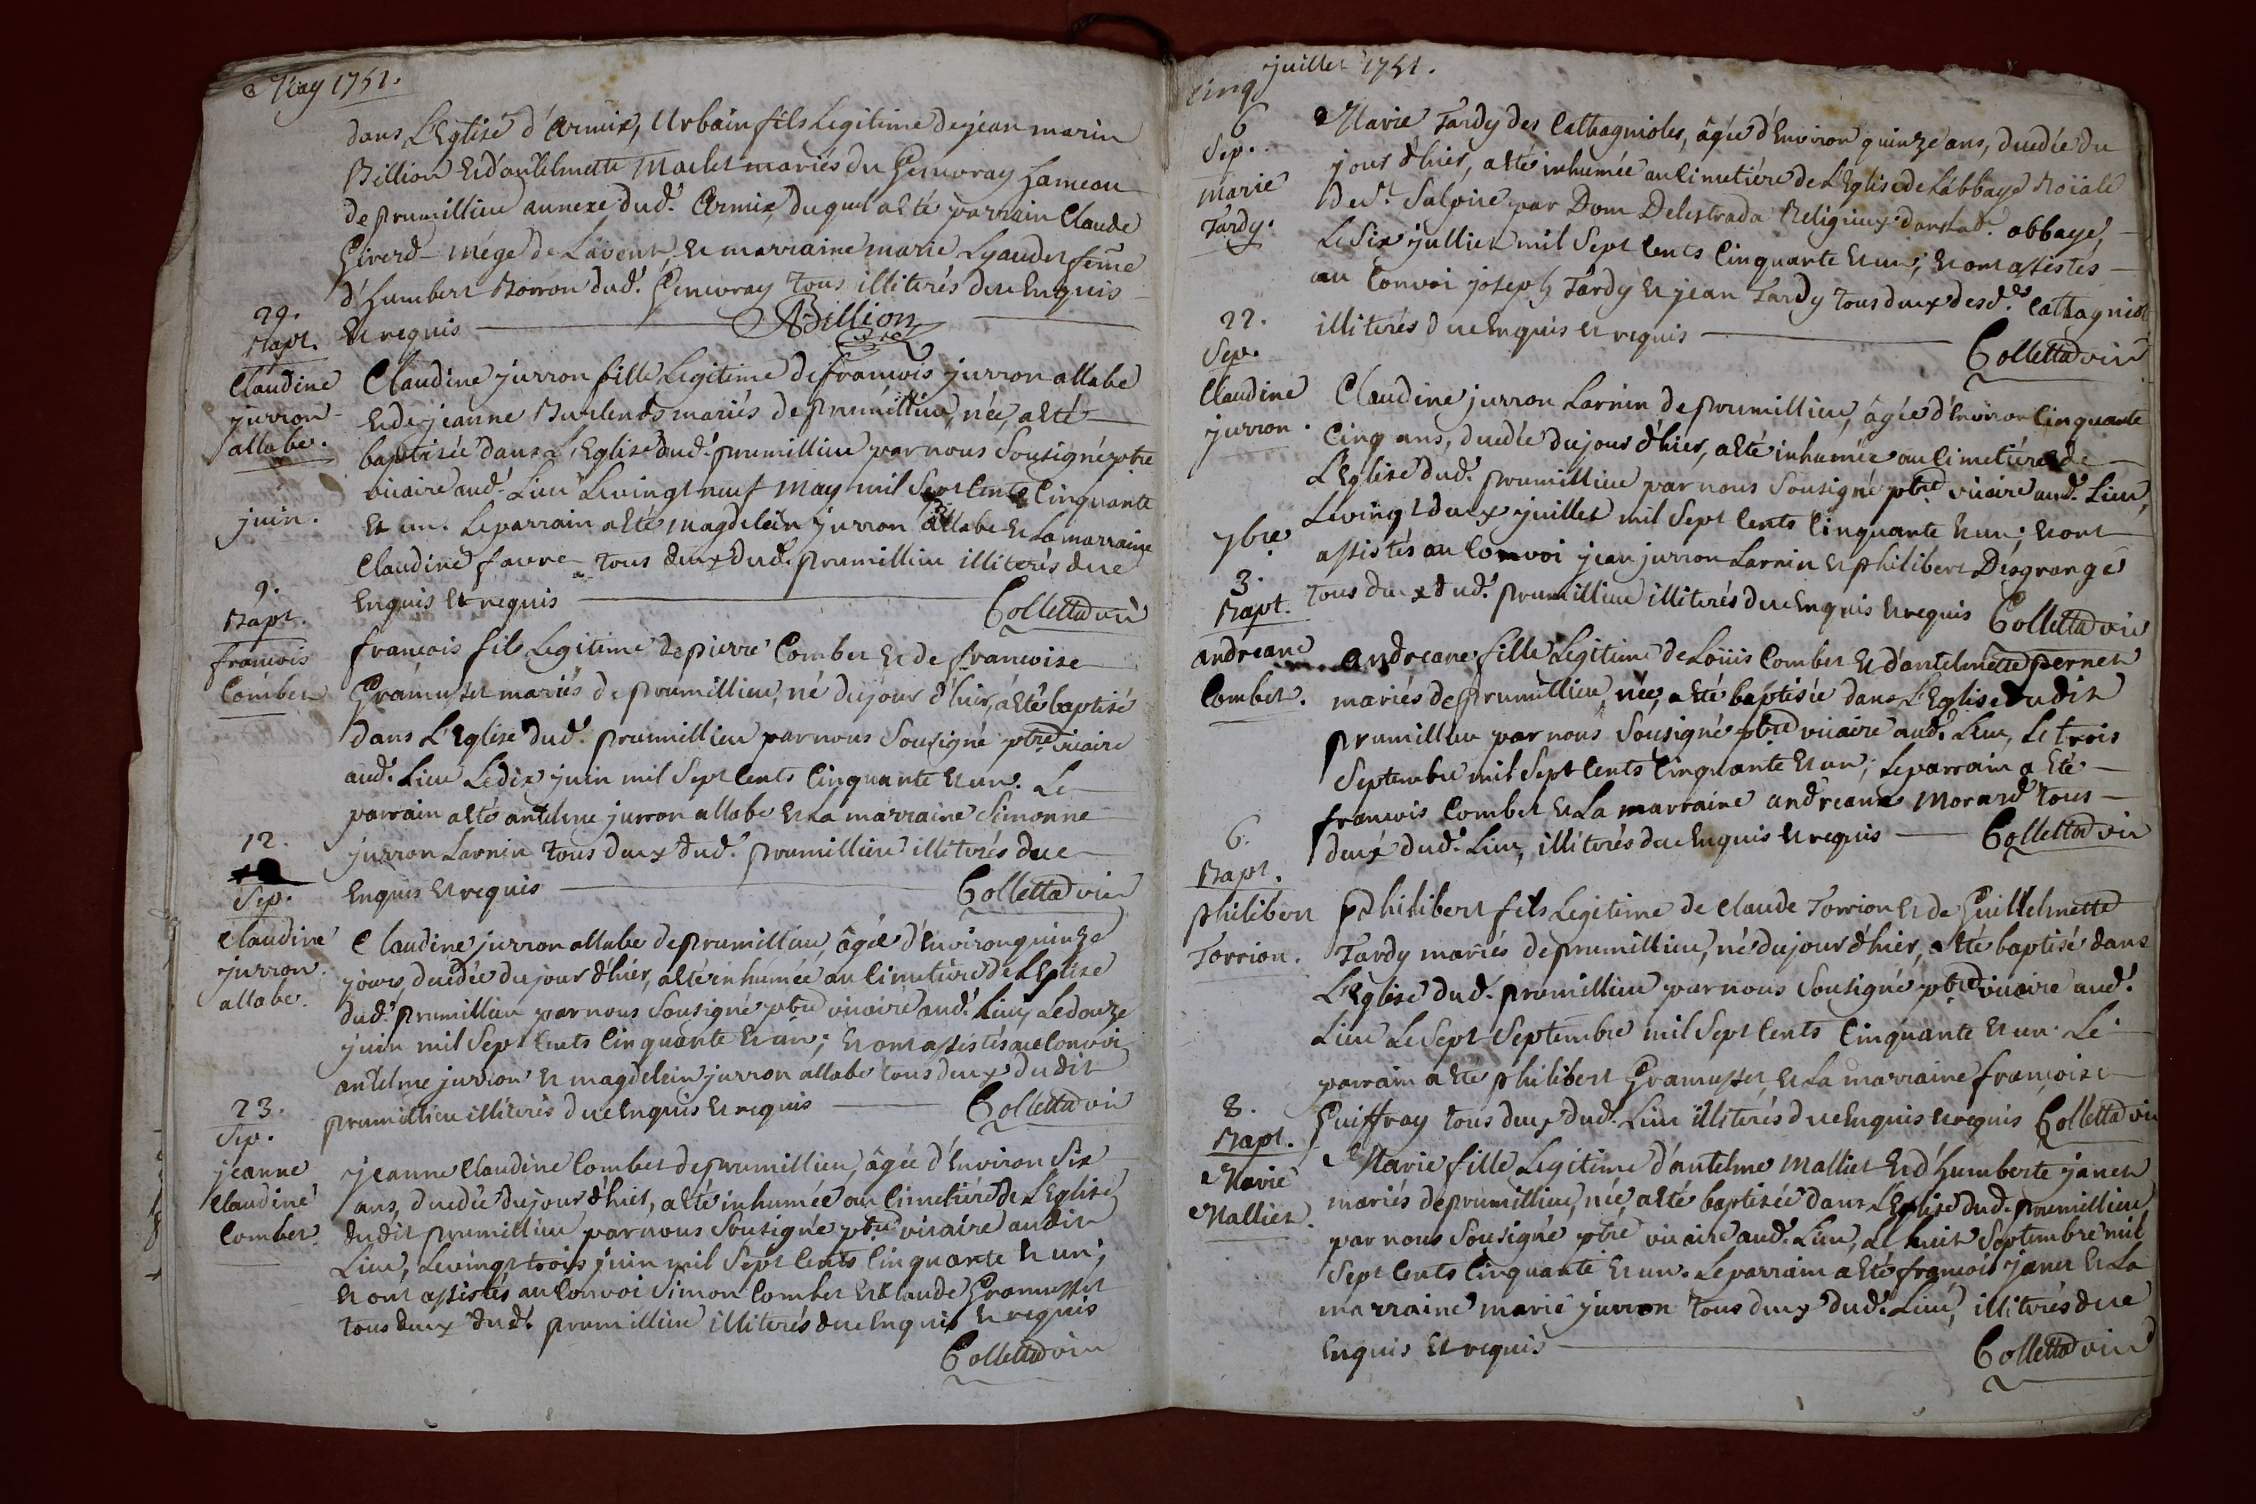 May 1751.
dans L'Eglise d'Armix, Urbain fils Legitime de jean marin
Billion et d'antelmette Maclet mariés du Genevray hameau
de prumillieu annexe dud. Armix, duquel a eté parrain Claude
Girerd mége de Lavent, et marraine marie Lyaudet feme
d'humbert Borron dud. Genevray tous illiterés deue enquis
et requis Billion
29.
Bapt.
Claudine
jurron
allabe.
Claudine jurron fille Legitime de francois jurron allabe
et de jeanne Burlends mariés de prumillieu, née, a eté
baptisée dans L'Eglise dud. prumillieu par nous Sousigné ptre
vicaire aud. Lieu Le vingt neuf May mil Sept Cents Cinquante
et un. Le parrain a eté magdelein jurron allabe et La marraine
Claudine favre tous deux dud. prumillieu illiterés deue
enquis et requis Colletta vic
juin.
9.
Bapt.
francois
Combet
francois fils Legitime de pierre Combet et de francoise
Gramusset mariés de prumillieu, né du jour d'hier, a eté baptisé
dans L'Eglise dud. prumillieu par nous Sousigné ptre vicaire
aud. Lieu Le dix juin mil Sept Cents Cinquante et un. Le
parrain a eté antelme jurron allabe et La marraine Simonne
jurron Larnin tous deux dud. prumillieu illiterés deue
enquis et requis Colletta vic
12.
Sep.
Claudine
jurron
allabe.
Claudine jurron allabe de prumillieu, âgée d'environ quinze
jours, decédée du jour d'hier, a eté inhumée au Cimetiere de L'Eglise
dud. prumillieu par nous Sousigné ptre vicaire aud. Lieu Le douze
juin mil Sept Cents Cinquante et un; et ont assistés au Convoi
antelme jurron et magdelein jurron allabe tous deux dudit
prumillieu illiterés deue enquis et requis Colletta vic
23.
Sep.
jeanne
Claudine
Combet.
jeanne Claudine Combet de prumillieu, âgée d'environ Six
ans, decédée du jour d'hier, a eté inhumée au Cimetiere de L'Eglise
dudit prumillieu par nous Sousigné ptre vicaire audit
Lieu, Le vingt trois juin mil Sept Cents Cinquante et un;
et ont assistés au Convoi Simon Combet et Claude Gramusset
tous deux dud. prumillieu illiterés deue enquis et requis
Colletta vic
Cinq juillet 1751.
6
Sep.
marie
Tardy.
Marie Tardy des Cathagnioles, âgée d'environ quinze ans, decédée du
jour d'hier, a eté inhumée au Cimetiére de L'Eglise de L'abbaye Roïale
de St. Sulpice par Dom Delestrada Religieux dans lad. abbaye,
Le Six jullier mil Sept Cents Cinquante et un; et ont assistés
au Convoi joseph Tardy et jean Tardy tous deux desd. Cathagniol
illiterés deue enquis et requis
Colletta vic
22.
Sep.
Claudine
jurron.
Claudine jurron Larnin de prumillieu, âgée d'environ Cinquante
Cinq ans, decédée du jour d'hier, a eté inhumée au Cimetiére de
L'Eglise dud. prumillieu par nous Sousigné ptre vicaire aud. Lieu,
Le vingt deux juillet mil Sept Cents Cinquante et un; et ont
assistés au Convoi jean jurron Larnin et philibert Desgrange
tous deux dud. prumillieu illiterés deue enquis et requis Colletta vic
7bre.
3.
Bapt.
andreane
Combet.
Andreane fille Legitime de Loüis Combet et d'antelmette pernet
mariés de prumillieu, née, a eté baptisée dans L'Eglise dudit
prumillieu par nous Sousigné ptre vicaire aud. Lieu, Le trois
Septembre mil Sept Cents Cinquante et un; Le parrain a eté
francois Combet et La marraine andreane Morard tous
deux dud. Lieu, illiterés deue enquis et requis Colletta vic
6.
Bapt.
philibert
Torrion.
philibert fils Legitime de Claude Torrion et de Guillelmette
Tardy mariés de prumillieu, né du jour d'hier, a eté baptisé dans
L'Eglise dud. prumillieu par nous Sousigné ptre vicaire aud.
Lieu Le Sept Septembre mil Sept Cents Cinquante et un. Le
parrain a eté philibert Gramusset et La marraine francoise
Guiffray tous deux dud. Lieu illiterés deue enquis et requis Colletta vic
8.
Bapt.
Marie
Mallier.
Marie fille Legitime d'antelme Mallier et d'humberte janet
mariés de prumillieu, née, a eté baptisée dans L'Eglise dud. prumillieu
par nous Sousigné ptre vicaire aud. Lieu, Le huit Septembre mil
Sept Cents Cinquante et un. Le parrain a eté francois janet et La
marraine marie jurron tous deux dud. Lieu, illiterés deue
enquis et requis Colletta vic